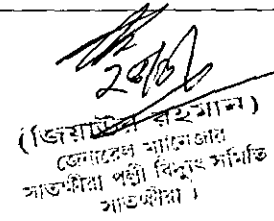 (জিয়াউর রহমান)
জেনারেল ম্যানেজার
সাতক্ষীরা পল্লী বিদ্যুৎ সমিতি
সাতক্ষীরা।